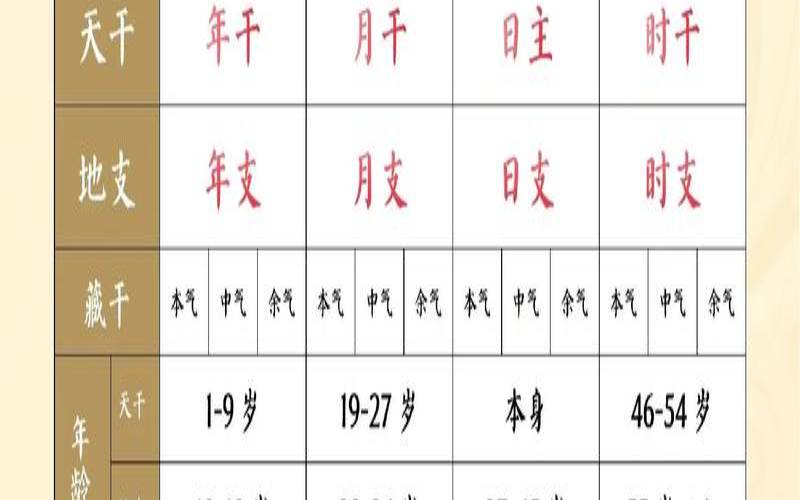 天干 年干 月干 日主 时干
地支 年支 月支 日支 时支
藏干 本气 中气 余气 本气 中气 余气 本气 中气 余气 本气 中气 余气
年龄 天干 1-9岁 19-27岁 本身 46-54岁